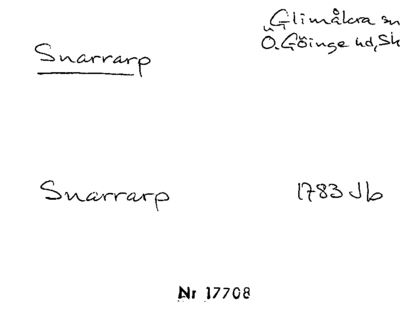 Glimåkra sn
Snarrarp
Ö. Göinge hd, Sk
Snarrarp
1783 Jb
Nr 17708